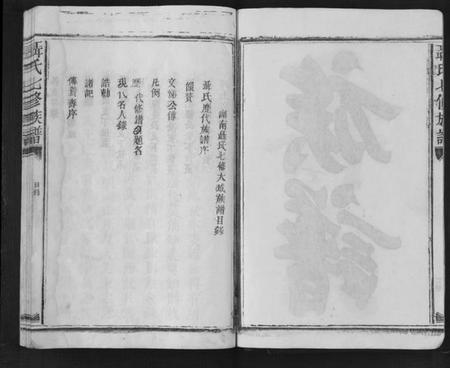 聶氏七修族譜
湖南聶氏七修大成族譜目錄
聶氏歷代族譜序
像贊
文悌公傳
凡例
歷代修譜題名
現代名人錄
誥勅
諸記
傳贊壽序
聶氏七修族譜
目錄